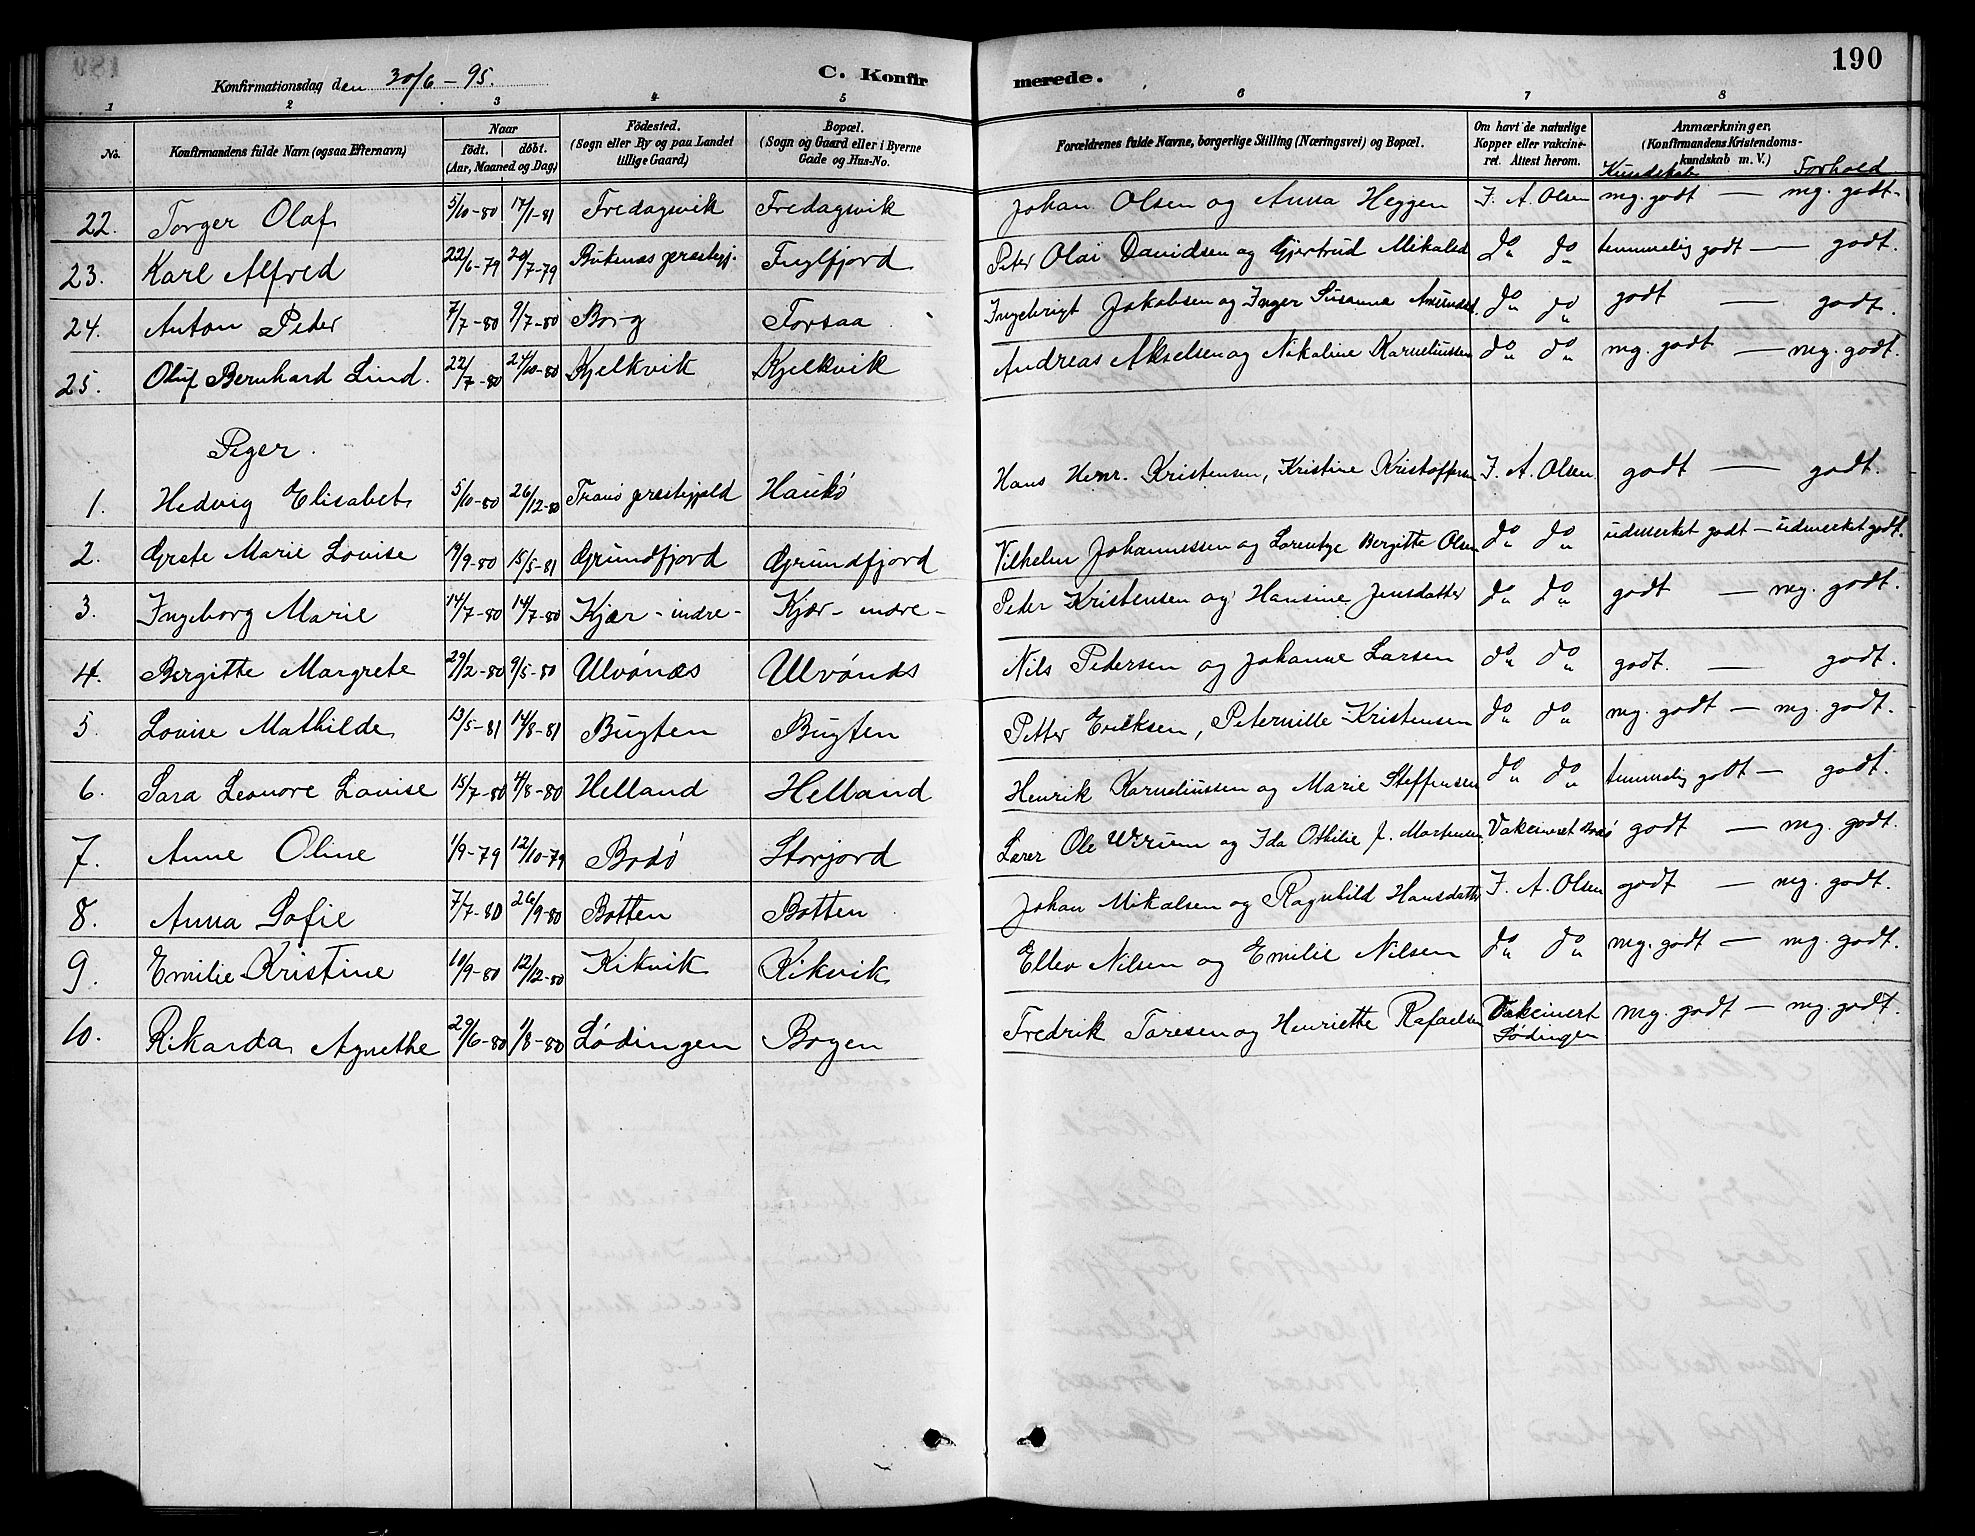 190
Konfirmationsdag den 30/6 - 95.
C. Konfirmerede.
1 2 3 4 5 6 7 8
No. Konfirmandens fulde Navn (ogsaa Efternavn) Naar født. døbt. (Aar, Maaned og Dag) Födested. (Sogn eller By og paa Landet tillige Gaard) Bopæl. (Sogn og Gaard eller i Byerne Gade og Hus-No. Forældrenes fulde Navne, borgerlige Stilling (Næringsvei) og Bopæl. Om havt de naturlige Kopper eller vakcineret. Attest herom. Anmærkninger. (Konfirmandens Kristendomskundskab m. V.) Kundskab Forhold
22. Torger Olaf 5/10-80 17/1-81 Fredagsvik Fredagsvik Johan Olsen og Anna Heggen J. A. Olsen mg. godt — mg. godt.
23. Karl Alfred 22/6-79 20/7-79 Buksnes prestegj. Inglfjord Peter Olai Davidsen og Gjertrud Mikalsd do do temmelig godt — godt.
24. Anton Peder 7/7-80 9/7-80 Borg Forsaa Ingebrigt Jakobsen og Inger Susanna Amundsd. do do godt — godt.
25. Oluf Bernhard Lind. 22/7-80 24/10-80 Kjelkvik Kjelkvik Andreas Akselsen og Nikoline Korneliussen do do mg. godt — mg. godt.
Piger.
1. Hedvig Elisabet 5/10-80 26/12-80 Tranø prestegjeld Haukø Hans Henr. Kristensen, Kristine Kristoffersen J. A. Olsen godt — godt.
2. Grete Marie Lovise 19/9-80 15/5-81 Grundfjord Grundfjord Vilhelm Johannessen og Lorentze Bergitte Olsen do do udmerket godt — udmerket godt.
3. Ingeborg Marie 14/7-80 14/7-80 Kjær - indre - Kjær - indre - Peder Kristensen og Hansine Jensdatter do do godt — mg. godt.
4. Bergitte Margrete 29/2-80 9/5-80 Ulvønæs Ulvønæs Nils Pedersen og Johanne Larsen do do godt. — godt.
5. Lovise Mathilde 13/5-81 14/8-81 Bugten Bugten Petter Eriksen, Peternille Kristensen do do mg. godt — mg. godt.
6. Sara Leonore Lovise 15/7-80 4/8-80 Helland Helland Henrik Korneliussen og Marie Steffensen do do temmelig godt — godt.
7. Anne Oline 1/9-79 12/10-79 Bodø Storjord Lærer Ole og Ida Othilie J. Mortensen Vakcineret Bodø godt — mg. godt.
8. Anna Sofie 7/7-80 26/9-80 Botten Botten Johan Mikalsen og Ragnhild Hansdatter J. A. Olsen godt — mg. godt.
9. Emilie Kristine 10/9-80 12/12-80 Kikvik Kikvik Ellev Nilsen og Emilie Nilsen do do mg. godt — mg. godt.
10. Rikarda Agnethe 29/6-80 1/8-80 Lødingen Bogen Fredrik Toresen og Henriette Rafaelsen Vakcinert Lødingen mg. godt — mg. godt.